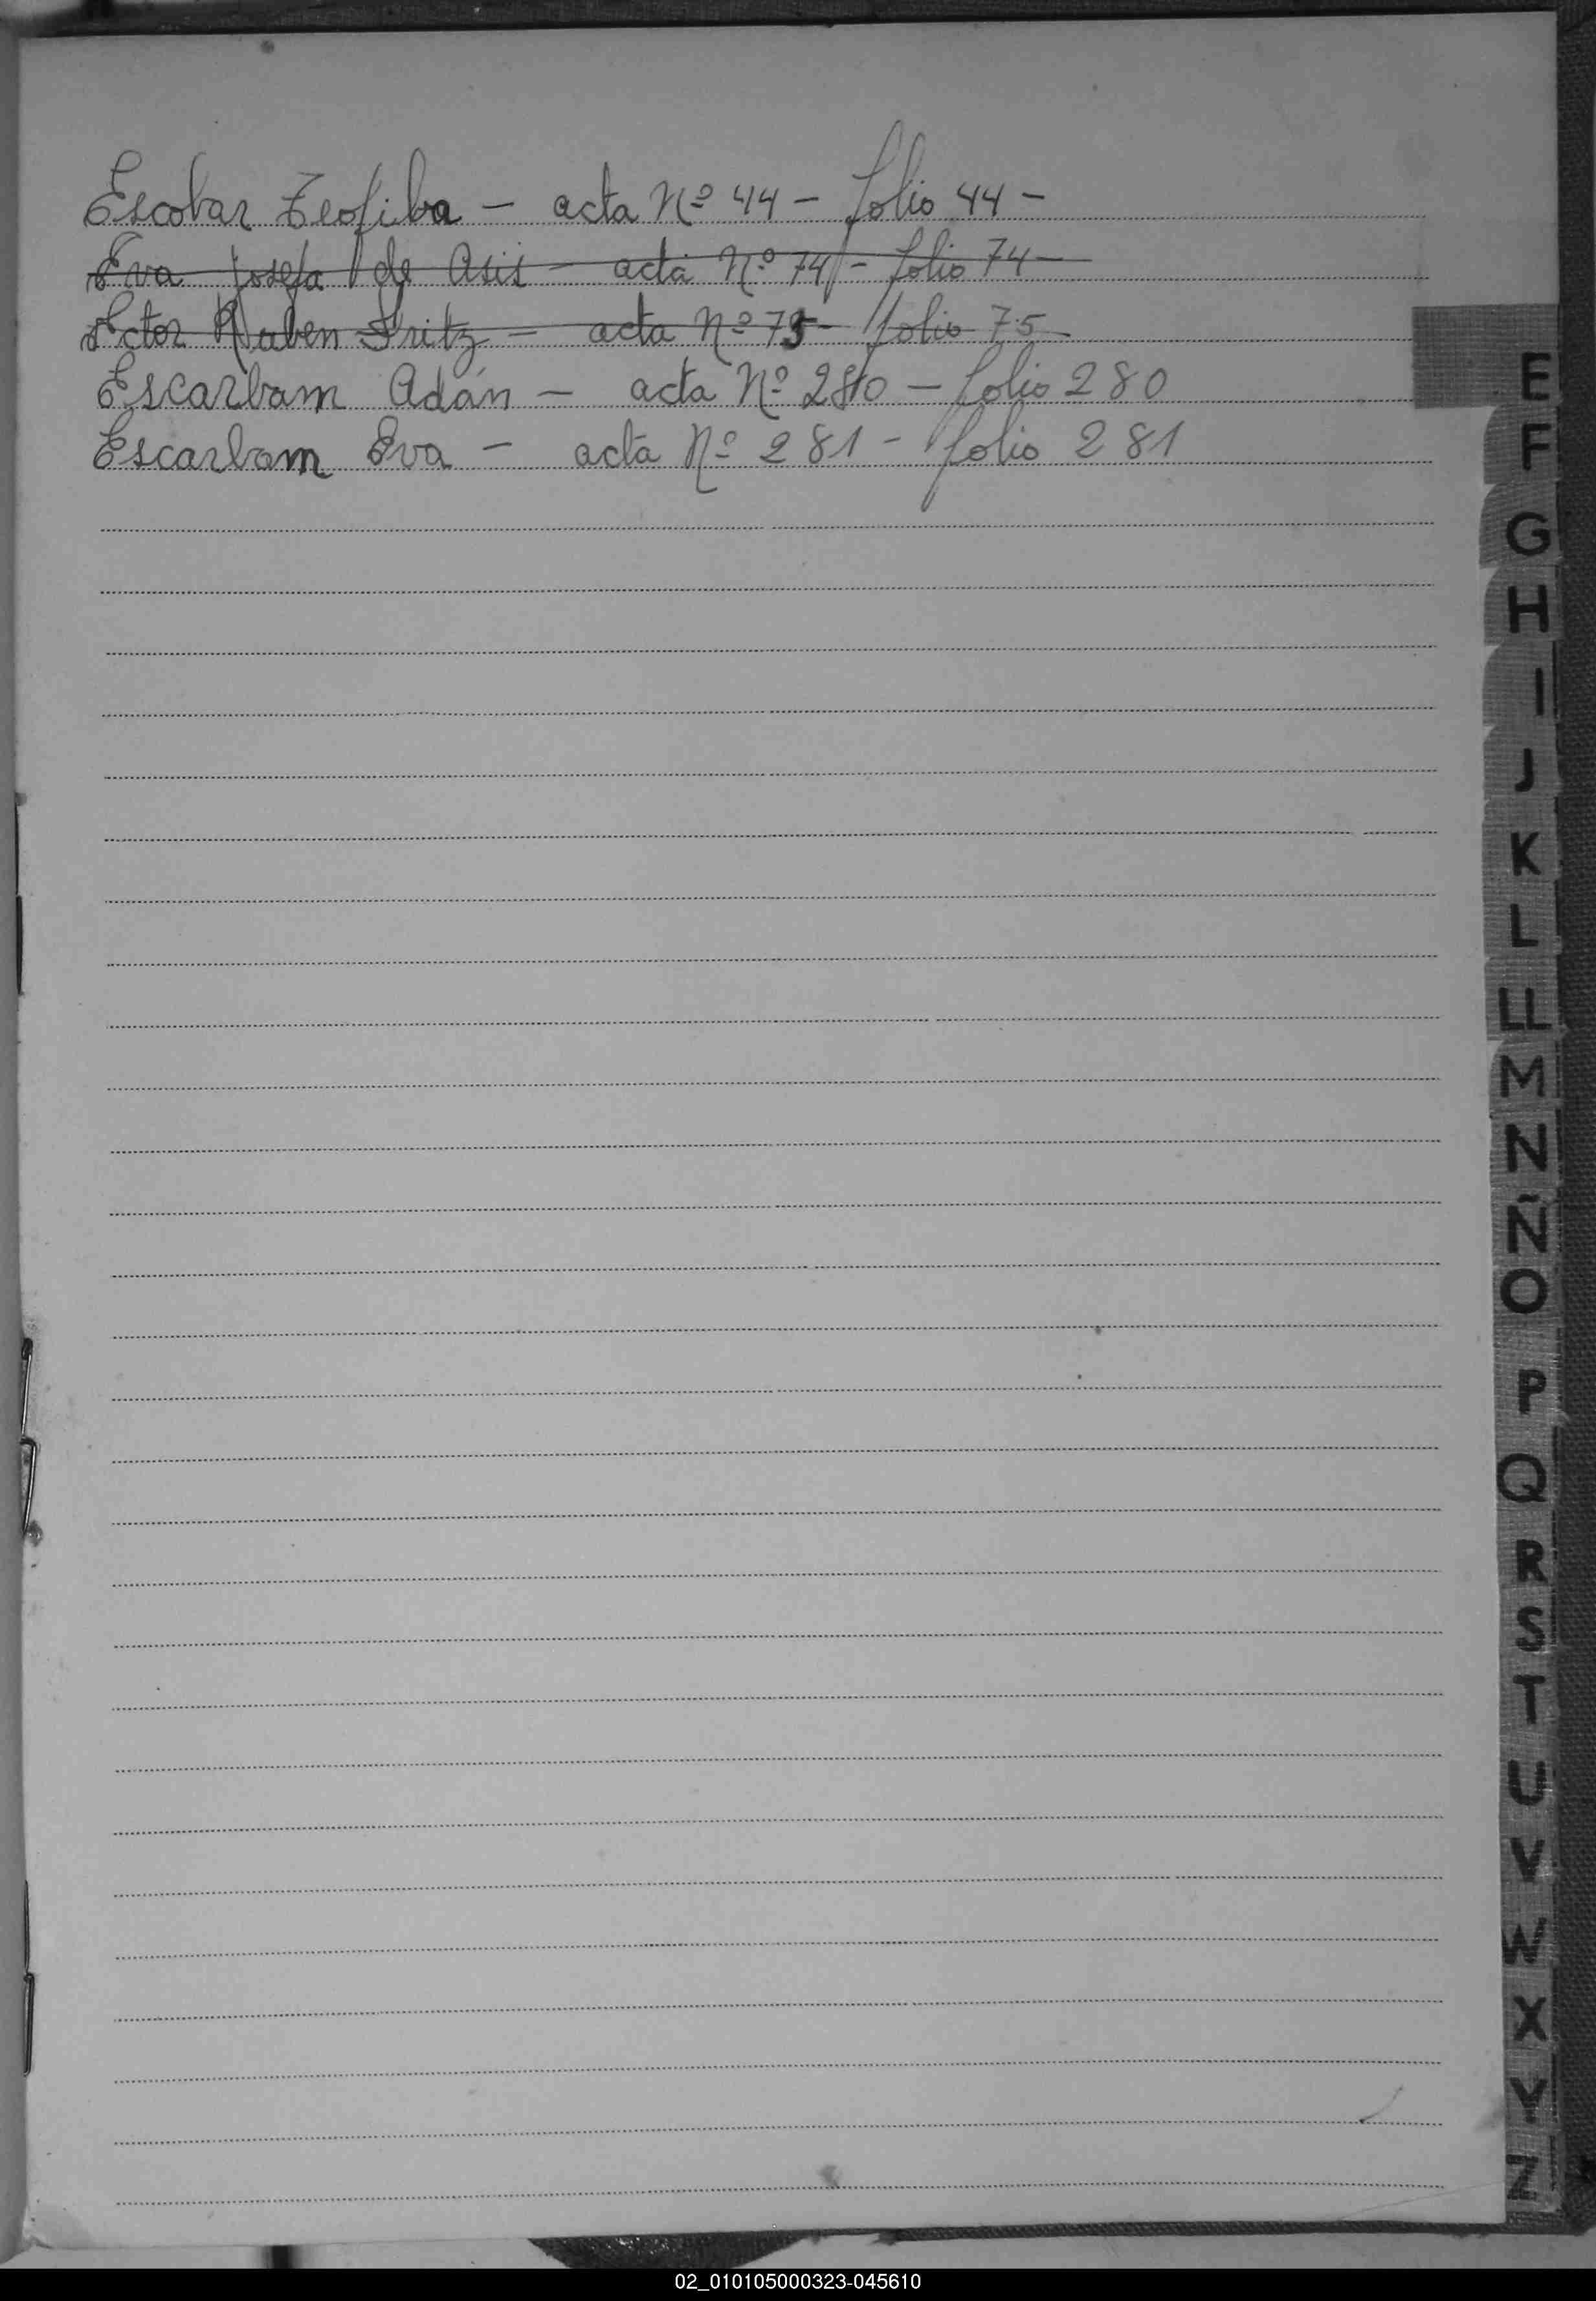 Escobar Teofila - acta Nº 44 - folio 44 -
Eva Josefa de Asis - acta Nº 74 - folio 74 -
Ector Ruben Fritz - acta Nº 75 - folio 75 -
Escarbam Adán - acta Nº 280 - folio 280
Escarbam Eva - acta Nº 281 - folio 281
E
F
G
H
I
J
K
L
LL
M
N
Ñ
O
P
Q
R
S
T
U
V
W
X
Y
Z
02_010105000323-045610